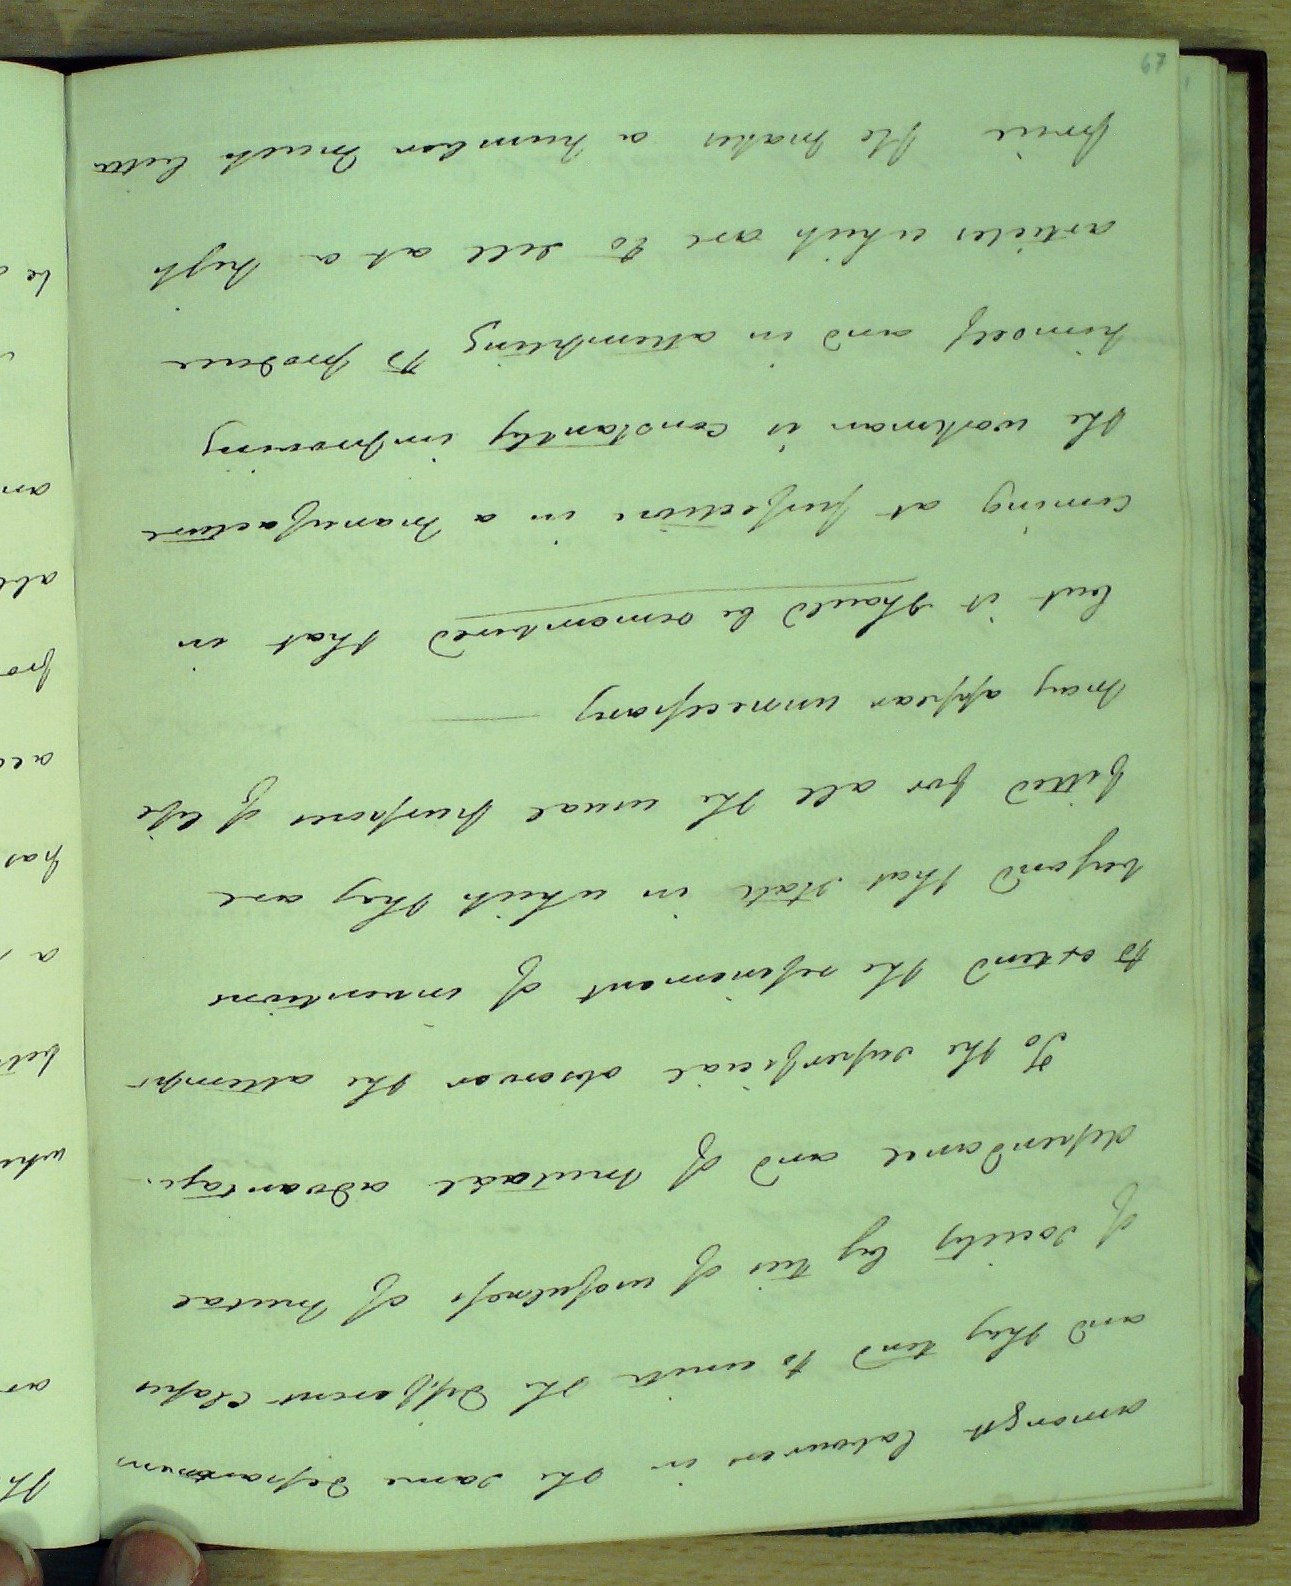 67
amongst labourers in the same department
and they tend to unite the different classes
of society by ties of usefulness of mutual
dependance and of mutual advantage.
To the superficial observer the attempt
to extend the refinement of inventions
beyond that state in which they are
fitted for all the usual purposes of life
may appear unnecessary —
but it should be remembered that in
coming at perfection in a manufacture
the workman is constantly improving
himself and in attempting to produce
articles which are to sell at a high
price He makes a number much better